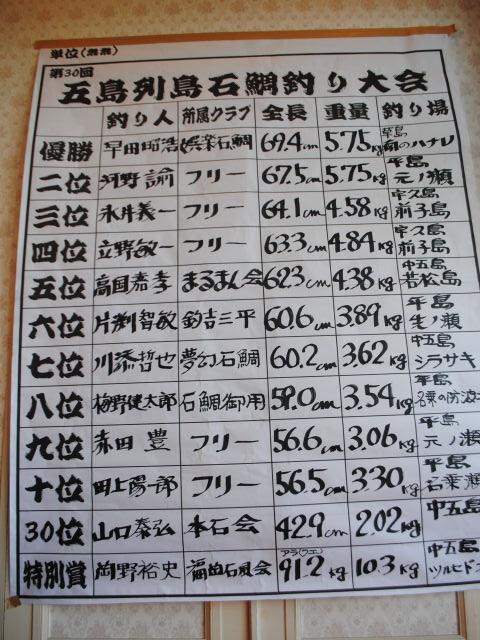 単位(㎝)
第30回
五島列島石鯛釣り大会
釣り人 所属クラブ 全長 重量 釣り場
優勝 早田昭浩 娯楽石鯛 69.4cm 5.75kg 平島 南のハナレ
二位 河野諭 フリー 67.5cm 5.75kg 平島 元ノ瀬
三位 永井義一 フリー 64.1cm 4.58kg 宇久島 前子島
四位 立野敏一 フリー 63.3cm 4.84kg 宇久島 前子島
五位 高国嘉孝 まるまん会 62.3cm 4.38kg 中五島 若松島
六位 片渕智敏 釣吉三平 60.6cm 3.89kg 平島 生ノ瀬
七位 川添哲也 夢幻石鯛 60.2cm 3.62kg 中五島 シラサキ
八位 梅野健太郎 石鯛御用 59.0cm 3.54kg 平島 名業の防波
九位 赤田豊 フリー 56.6cm 3.06kg 平島 元ノ瀬
十位 田上陽一郎 フリー 56.5cm 3.30kg 平島 名業瀬
30位 山口泰弘 本石会 42.9cm 2.02kg 中五島
特別賞 岡野裕史 福田石風会 アラ(クエ) 91.2kg 10.3kg 中五島 ツルヒド